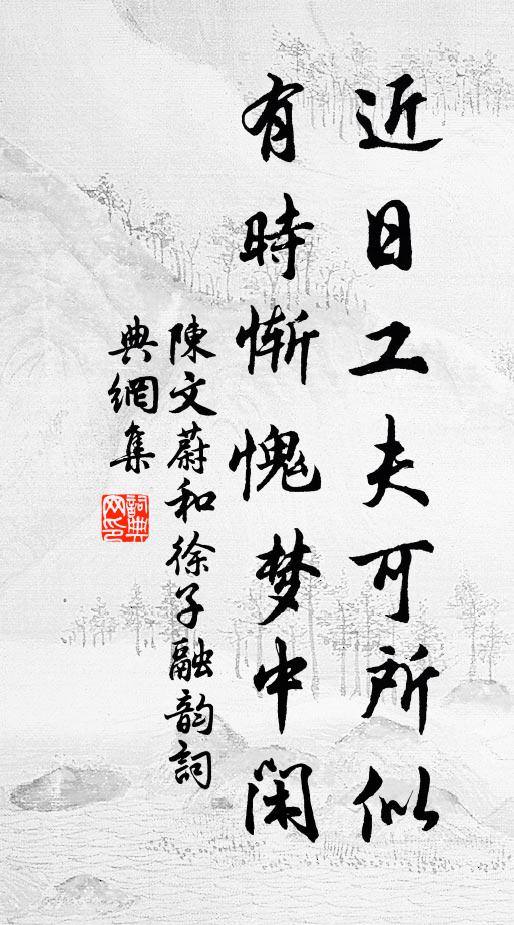 近日工夫可所似
有時慚愧梦中闲
陳文蔚和徐子融韵詞
典網集
詞典網印